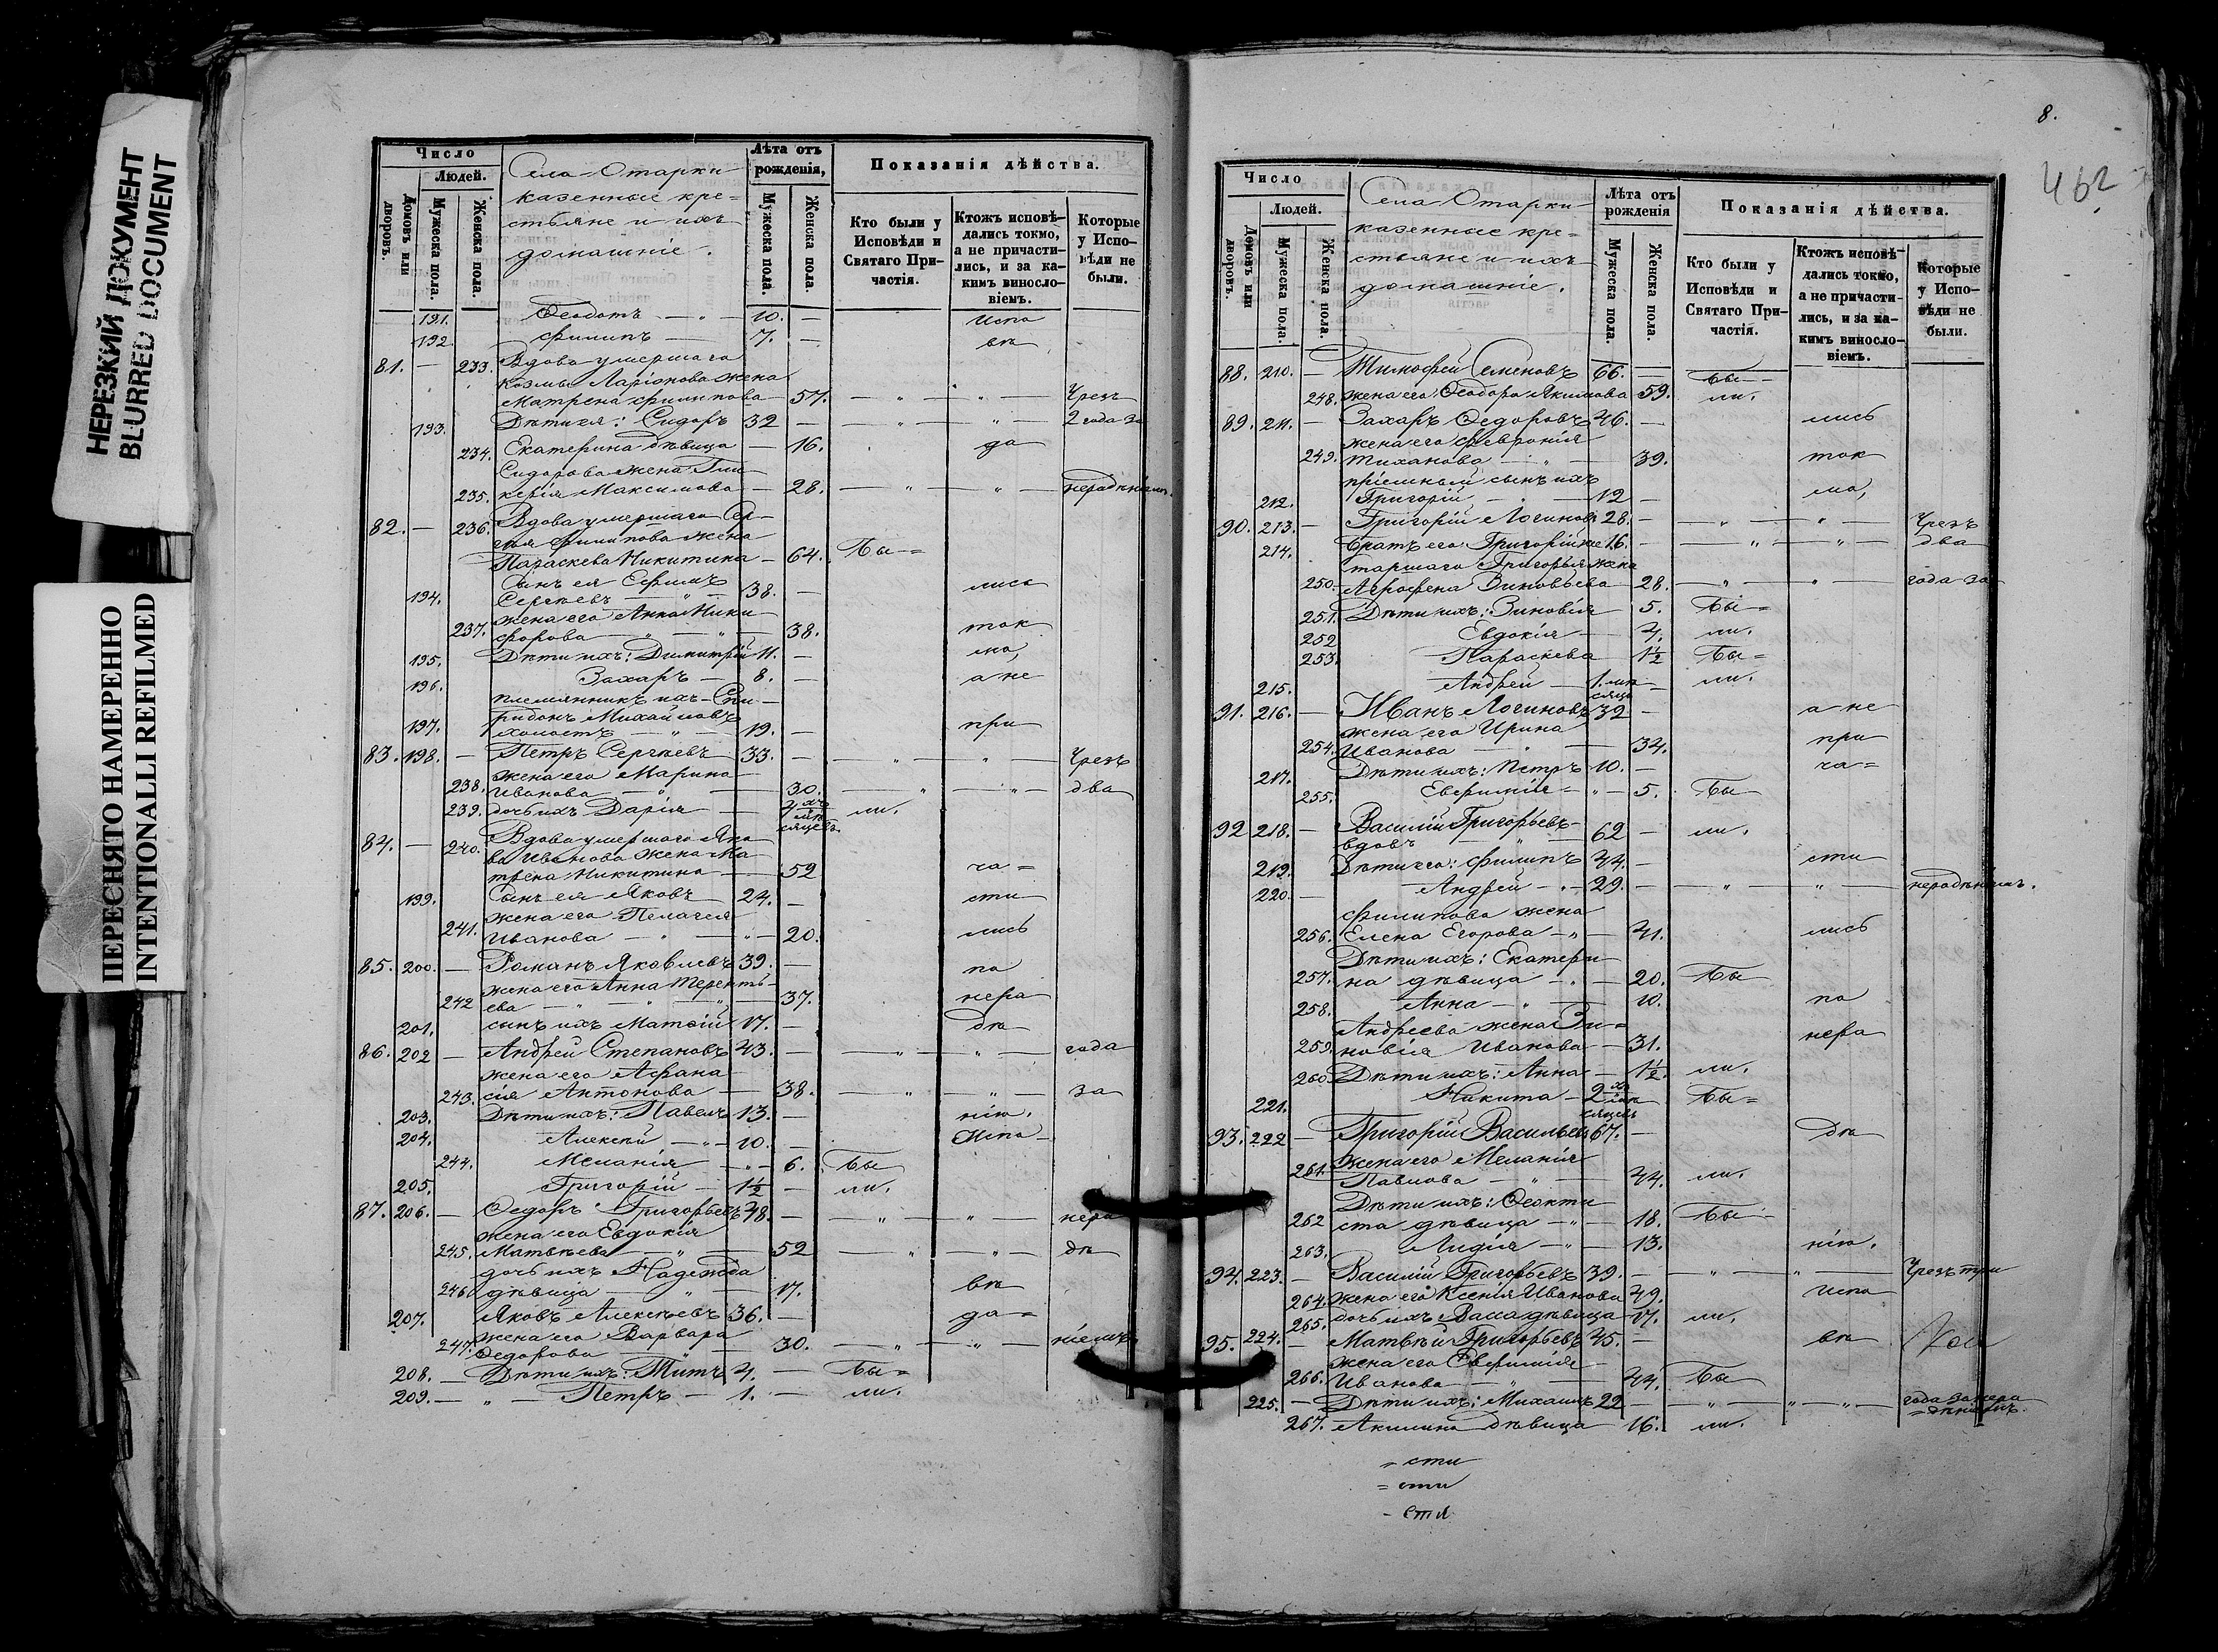 НЕРЕЗКИЙ ДОКУМЕНТ
BLURRED DOCUMENT
ПЕРЕСНЯТО НАМЕРЕННО
INTENTIONALLI REFILMED
Число
Людей.
Домовъ или дворовъ.
Мужеска пола.
Женска пола.
Села Отарки
казенные кре=
стьяне и ихъ
домашніе.
Лѣта отъ
рожденія,
Мужеска пола.
Женска пола.
Показанія дѣйства.
Кто были у
Исповѣди и
Святаго При-
частія.
Ктожъ исповѣ-
дались токмо,
а не причасти-
лись, и за ка-
кимъ виносло-
віемъ.
Которые
у Испо-
вѣди не
были.
191. Ѳеодотъ — 10. — Испо
192. Филипъ — 7. — вѣ
81. — 233. Вдова умершаго
Козмы Ларіонова жена
Матрена Филипова 57. — Чрезъ
193. Дѣти ея: Сидоръ 32 — 2 года за
234. Екатерина дѣвица — 16. да
Сидорова жена Гли
235. керія Максимова — 28. — нерадѣніемъ.
82. — 236. Вдова умершаго Сер-
гѣя Филипова жена
Параскева Никитина — 64. Бы=
Сынъ ея Ефимъ
194. Сергѣевъ 38. — лись
жена его Анна Ники
237. форова — 38. ток
195. Дѣти ихъ: Димитрій 11. — мо,
196. Захаръ — 8. — а не
племянникъ ихъ Спи-
197. ридонъ Михайловъ
холостъ — 19. — при
83. 198. — Петръ Сергѣевъ 33. — Чрезъ
жена его Марина
238. Иванова — 30. — два
239. дочь ихъ Дарія — мѣ сяцевъ. ли.
84. — 240. Вдова умершаго Яко
ва Иванова жена Ма
трена Никитина — 52 ча=
199. Сынъ ея Яковъ 24. — сти
жена его Пелагея
241. Иванова — 20. лись
85. 200. — Романъ Яковлевъ 39. — по
жена его Анна Теренть-
242 ева — 37. нера
201. сынъ ихъ Матѳій 17. — дѣ
86. 202 — Андрей Степановъ 43. — года
жена его Афана
243. сія Антонова — 38. — за
203. Дѣти ихъ: Павелъ 13. — нію.
204. Алексѣй — 10. — Испо
244. Меланія — 6. Бы
205. Григорій — 1½ — ли.
87. 206. — Ѳедоръ Григорьевъ 48. — нера
жена его Евдокія
245. Матвѣева — 52 — дѣ
дочь ихъ Надежда
246 дѣвица — 17. вѣ
207. Яковъ Алексѣевъ 36. — да=
жена его Варвара
247. Ѳедорова — 30. — ніемъ
208. — Дѣти ихъ: Титъ 4. — Бы=
209. — Петръ — 1. — ли.
8.
462
Число
Людей.
Домовъ или дворовъ.
Мужеска пола.
Женска пола.
Села Отарки
казенные кре=
стьяне и ихъ
домашніе.
Лѣта отъ
рожденія
Мужеска пола.
Женска пола.
Показанія дѣйства.
Кто были у
Исповѣди и
Святаго При-
частія.
Ктожъ исповѣ-
дались токмо,
а не причасти-
лись, и за ка-
кимъ виносло-
віемъ.
Которые
у Испо-
вѣди не
были.
88. 210. — Тимофей Семеновъ 66. — Бы-
248. жена его Ѳеодора Якимова 59. ли.
89. 211. — Захаръ Ѳедоровъ 46. — лись
жена его Февронія
249. Тиханова — 39. ток
пріемный сынъ ихъ
212. Григорій — 12 — мо,
90. 213. — Григорій Логиновъ 28. — Чрезъ
214. Братъ его Григорій же 16. — два
старшаго Григорья жена
250. Агрофена Зиновьева 28. — года за
251. Дѣти ихъ: Зиновія 5. Бы=
252 Евдокія — 4. ли.
253. Параскева 1½ Бы=
215. Андрей — 1. мѣ сяца — ли.
91. 216. — Иванъ Логиновъ 32 — а не
жена его Ирина
254. Иванова — 34. при
217. Дѣти ихъ: Петръ 10. — ча=
255. Евѳимія — 5. Бы
92 218. — Василій Григорьевъ
вдовъ 62 — ли.
219. Дѣти его: Филипъ 44. — сти
220. — Андрей — 29. — нерадѣніемъ.
Филипова жена
256. Елена Егорова — 41. лись
Дѣти ихъ: Екатери
257. на дѣвица — 20. Бы
258. Анна — 10. по
Андреева жена Зи=
259. новія Иванова — 31. нера
260 Дѣти ихъ: Анна — 1½. ли.
221. Никита — 2 хъ мѣ сяцевъ Бы=
93. 222 — Григорій Васильевъ 67. — дѣ
261. жена его Меланія
Павлова — 44. ли.
Дѣти ихъ: Ѳеокти
262 ста дѣвица — 18. Бы
263. Лидія — 13. нію.
94. 223. — Василій Григорьевъ 39. — Чрезъ три
264. жена его Ксенія Иванова 49. Испо
265. дочь ихъ Васса дѣвица 17. ли.
95. 224. — Матвѣй Григорьевъ 45. — вѣ
жена его Евѳимія
266. Иванова — 44. Бы
225. — Дѣти ихъ: Михаилъ 22 — года за нера
=дѣніемъ.
267. Акилина дѣвица 16. ли.
= сти
= сти
- сти